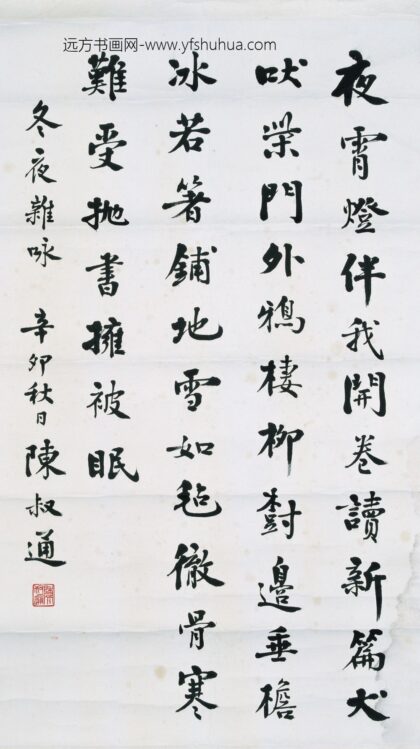 远方书画网-www.yfshuhua.com
夜霄燈伴我開卷讀新篇犬
吠柴門外鴉棲柳樹邊垂檐
冰若箸鋪地雪如毡徹骨寒
難受抛書擁被眠
冬夜雜咏 辛卯秋日陳叔通